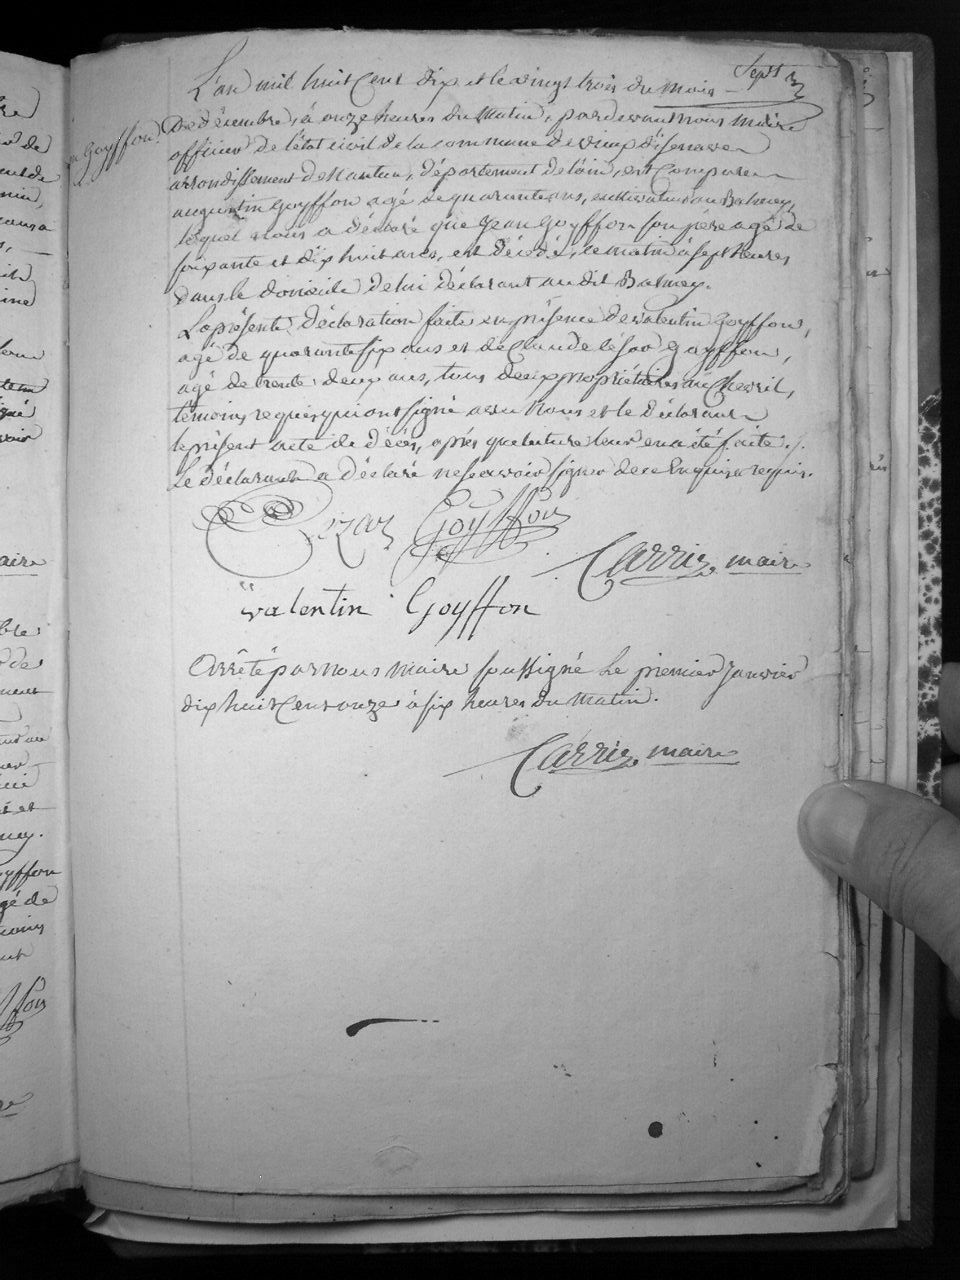 Sept
L'an mil huit Cent dix et le vingt trois du mois
De décembre, à onze heures du Matin, pardevant nous Maire
Goyffon.
officier de l'état civil de la commune de
arrondissement de Nantua, département de l'ain, est Comparu
augustin Goyffon agé de quarante ans, cultivateur au Balmey,
lequel nous a déclaré que Jean Goyffon son père agé de
soixante et dix huit ans, est décédé, le matin à sept heures
dans le domicile de lui déclarant au dit Balmey.
La présente déclaration faite en présence de valentin Goyffon,
agé de quarante six ans et de Claude César Goyffon,
agé de trente deux ans, tous deux propriétaires au Chevril,
témoins requis qui ont signé avec Nous et le déclarant
le présent acte de décès, après que lecture leur en a été faite ./.
Le déclarant a déclaré ne savoir signer de ce Enquis et requis.
Cezar Goyffon
Carrier maire
valentin Goyffon
Arrêté par nous Maire soussigné Le premier Janvier
dix huit Cent onze à six heures du Matin.
Carrier maire